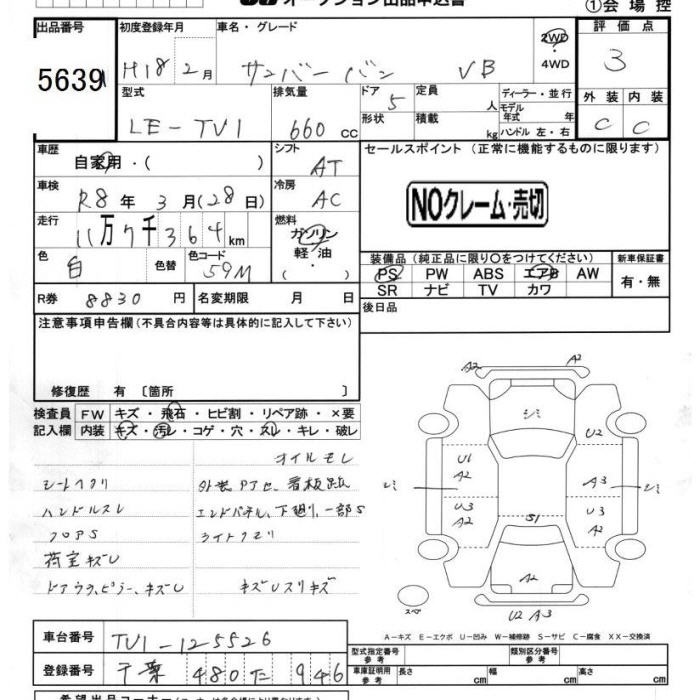 オークション出品申込書
①会場控
出品番号 初度登録年月 車名・グレード 評価点
5639 H18 2月 サンバーバン VB 2WD 4WD 3
型式 排気量 ドア 定員 ディーラー・並行 外装 内装
LE-TV1 660cc 5 人 モデル年式 年 C C
形状 積載 kg ハンドル 左・右
車歴 シフト セールスポイント(正常に機能するものに限ります)
自家用・( ) AT
車検 冷房
R8年3月(28日) AC NOクレーム・売切
走行 燃料
11万7千364km ガソリン
軽油
色 色替 色コード ・
白 59M ( )
装備品(純正品に限り〇をつけてください) 新車保証書
PS PW ABS エアB AW 有・無
SR ナビ TV カワ
R券 8830円 名変期限 月 日 後日品
注意事項申告欄(不具合内容等は具体的に記入して下さい)
修復歴 有〔箇所 〕
検査員 FW キズ・飛石・ヒビ割・リペア跡・×要
記入欄 内装 キズ・汚レ・コゲ・穴・スレ・キレ・破レ
オイルモレ
シートヘタリ 外装アセ、看板跡
ハンドルスレ エンドパネル、下廻り、一部S
フロアS ライトクモリ
荷室キズU
ドアウラ、ピラー、キズU キズUスリキズ
A2 A2
シミ
U2
U1
A2
シミ A3 シミ
U3 U3
A2 A2
S1
A2
スペ
U2 A3
A-キズ E-エクボ U-凹み W-補修跡 S-サビ C-腐食 XX-交換済
車台番号 TV1-125526
型式指定番号 参考 類別区分番号 参考
登録番号 千葉 480 た 946
車庫証明用 参考 長さ cm 幅 cm 高さ cm